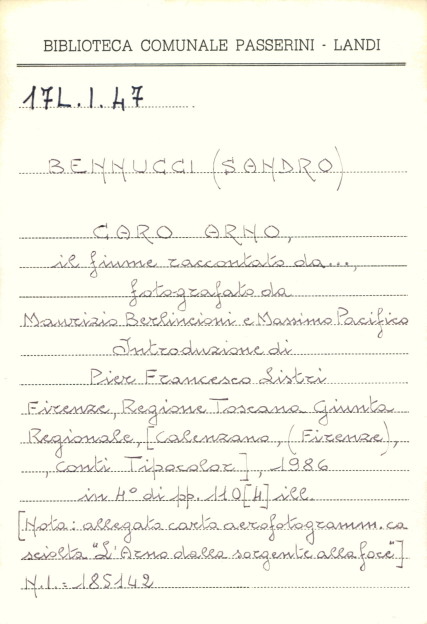 BIBLIOTECA COMUNALE PASSERINI - LANDI
17L.I.47
BENNUCCI (SANDRO)
CARO ARNO,
il fiume raccontato da...,
fotografato da
Maurizio Berlincioni e Massimo Pacifico
Introduzione di
Pier Francesco Listri
Firenze, Regione Toscana Giunta
Regionale, [Calenzano, (Firenze),
, Conti Tipocolor], 1986
in 4° di pp. 110[4] ill.
[Nota: allegata carta aerofotogramm.ca
sciolta "L'Arno dalla sorgente alla foce"]
N.I.: 185142